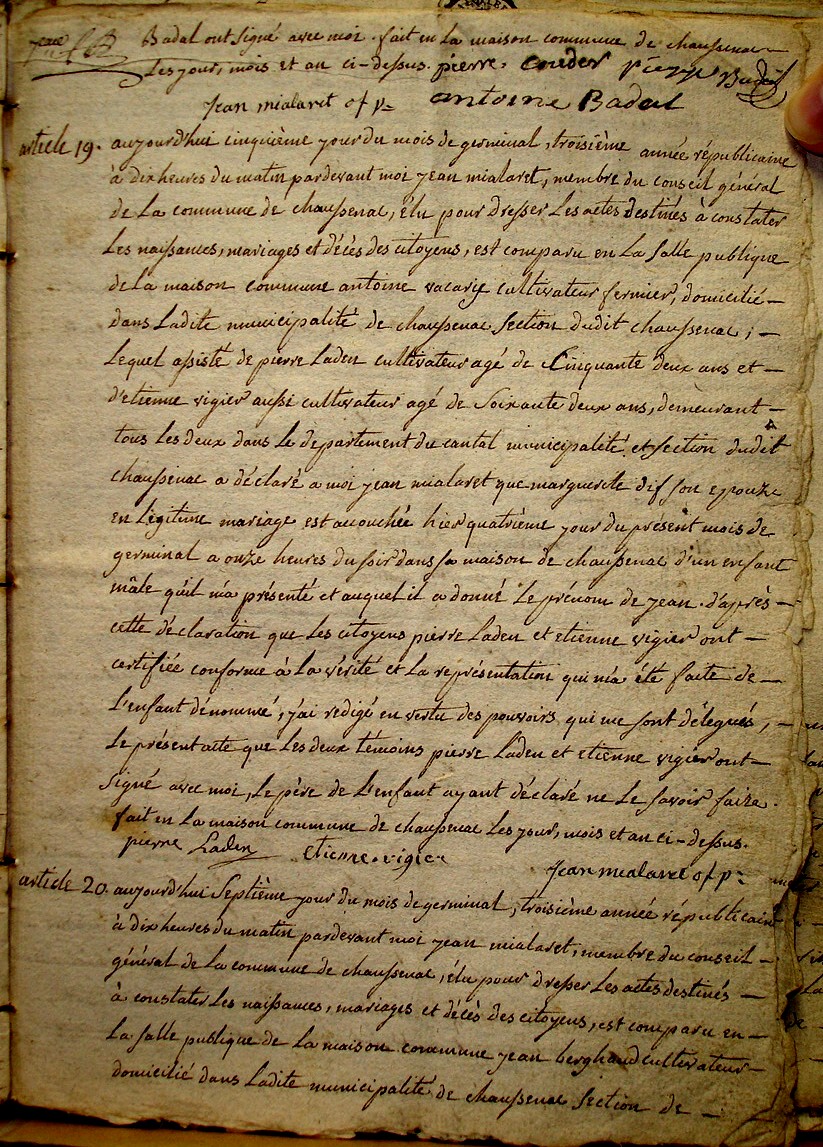 Badal ont signé avec moi. fait en la maison commune de chaussenac
les jour, mois et an ci-dessus. pierre couder pierre Badal
Jean mialaret of p.
antoine Badal
article 19. aujourd'hui cinquième jour du mois de germinal, troisième année républicaine
à dix heures du matin pardevant moi jean mialaret, membre du conseil général
de la commune de chaussenac, élu pour dresser les actes destinés à constater
les naissances, mariages et décès des citoyens, est comparu en la salle publique
de la maison commune antoine vacarie cultivateur fermier, domicilié
dans ladite municipalité de chaussenac section dudit chaussenac ;
lequel assisté de pierre Laden cultivateur agé de cinquante deux ans et
d'etienne vigier aussi cultivateur agé de soixante deux ans, demeurant
tous les deux dans le departement du cantal municipalité et section dudit
chaussenac a déclaré a moi jean mialaret que marguerite dif son epouze
en légitime mariage est accouchée hier quatrième jour du présent mois de
germinal a onze heures du soir dans sa maison de chaussenac d'un enfant
mâle qu'il m'a présenté et auquel il a donné le prénom de jean. d'après
cette déclaration que les citoyens pierre Laden et etienne vigier ont
certifiée conforme à la vérité et la représentation qui m'a été faite de
l'enfant dénommé, j'ai redigé en vertu des pouvoirs qui me sont délegués,
le présent acte que les deux témoins pierre Laden et etienne vigier ont
signé avec moi, le père de l'enfant ayant déclaré ne le savoir faire.
fait en la maison commune de chaussenac les jour, mois et an ci-dessus.
pierre Laden etienne vigier
Jean mialaret of p.
article 20. aujourd'hui septième jour du mois de germinal, troisième année républicaine
à dix heures du matin pardevant moi jean mialaret, membre du conseil
général de la commune de chaussenac, élu pour dresser les actes destinés
à constater les naissances, mariages et décès des citoyens, est comparu en
la salle publique de la maison commune jean berghaud cultivateur
domicilié dans ladite municipalité de chaussenac section de